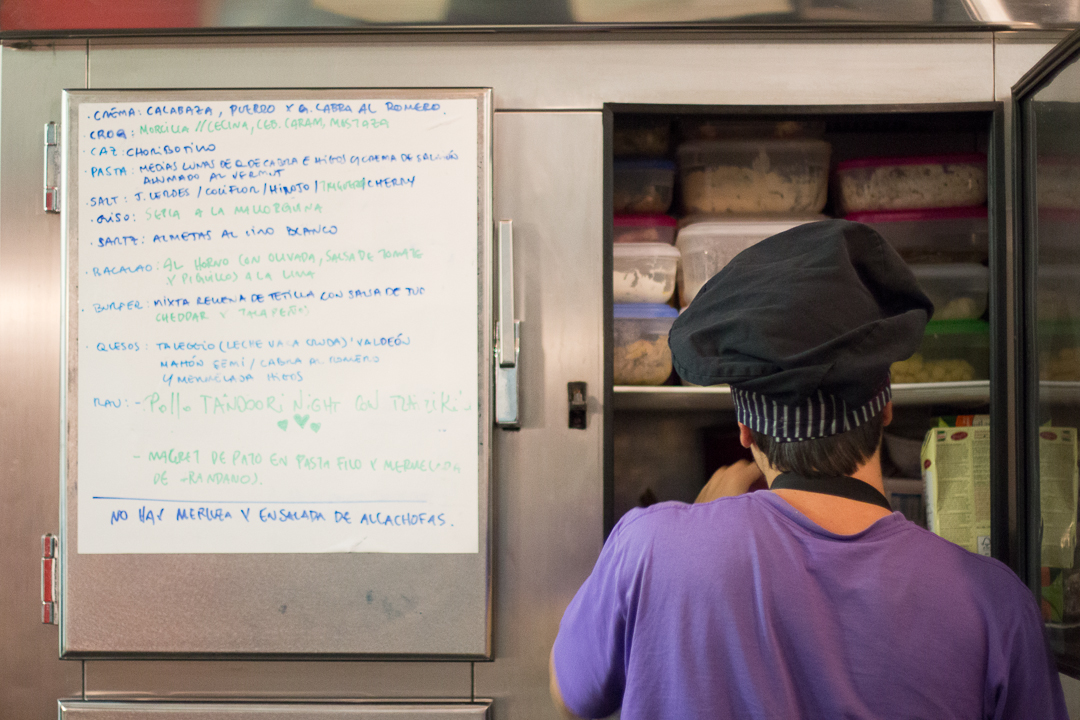 · CREMA: CALABAZA, PUERRO Y Q. CABRA AL ROMERO.
· CROQ: MORCILLA // CECINA, CEB. CARAM, MOSTAZA
· CAZ: CHORIBOTILLO
· PASTA: MEDIAS LUNAS DE Q. DE CABRA E HIGOS C/CREMA DE SALMÓN
AHUMADO AL VERMUT
· SALT: J. VERDES / COLIFLOR / HINOJO / /CHERRY
· GUISO: SEPIA A LA MALLORQUINA
· SARTZ: ALMEJAS AL VINO BLANCO
· BACALAO: AL HORNO CON OLIVADA, SALSA DE TOMATE
Y PIQUILLO) A LA LIMA
· BURGER: MIXTA RELLENA DE TETILLA CON SALSA DE
CHEDDAR Y JALAPEÑOS
· QUESOS: TALEGGIO (LECHE VACA CRUDA) / VALDEÓN
MAHÓN SEMI / CABRA AL ROMERO
Y MERMELADA HIGOS
RAU: - Pollo TANDOORI NIGHT CON TZATZIKI
- MAGRET DE PATO EN PASTA FILO Y MERMELADA
DE ARANDANOS.
NO HAY MERLUZA Y ENSALADA DE ALCACHOFAS.